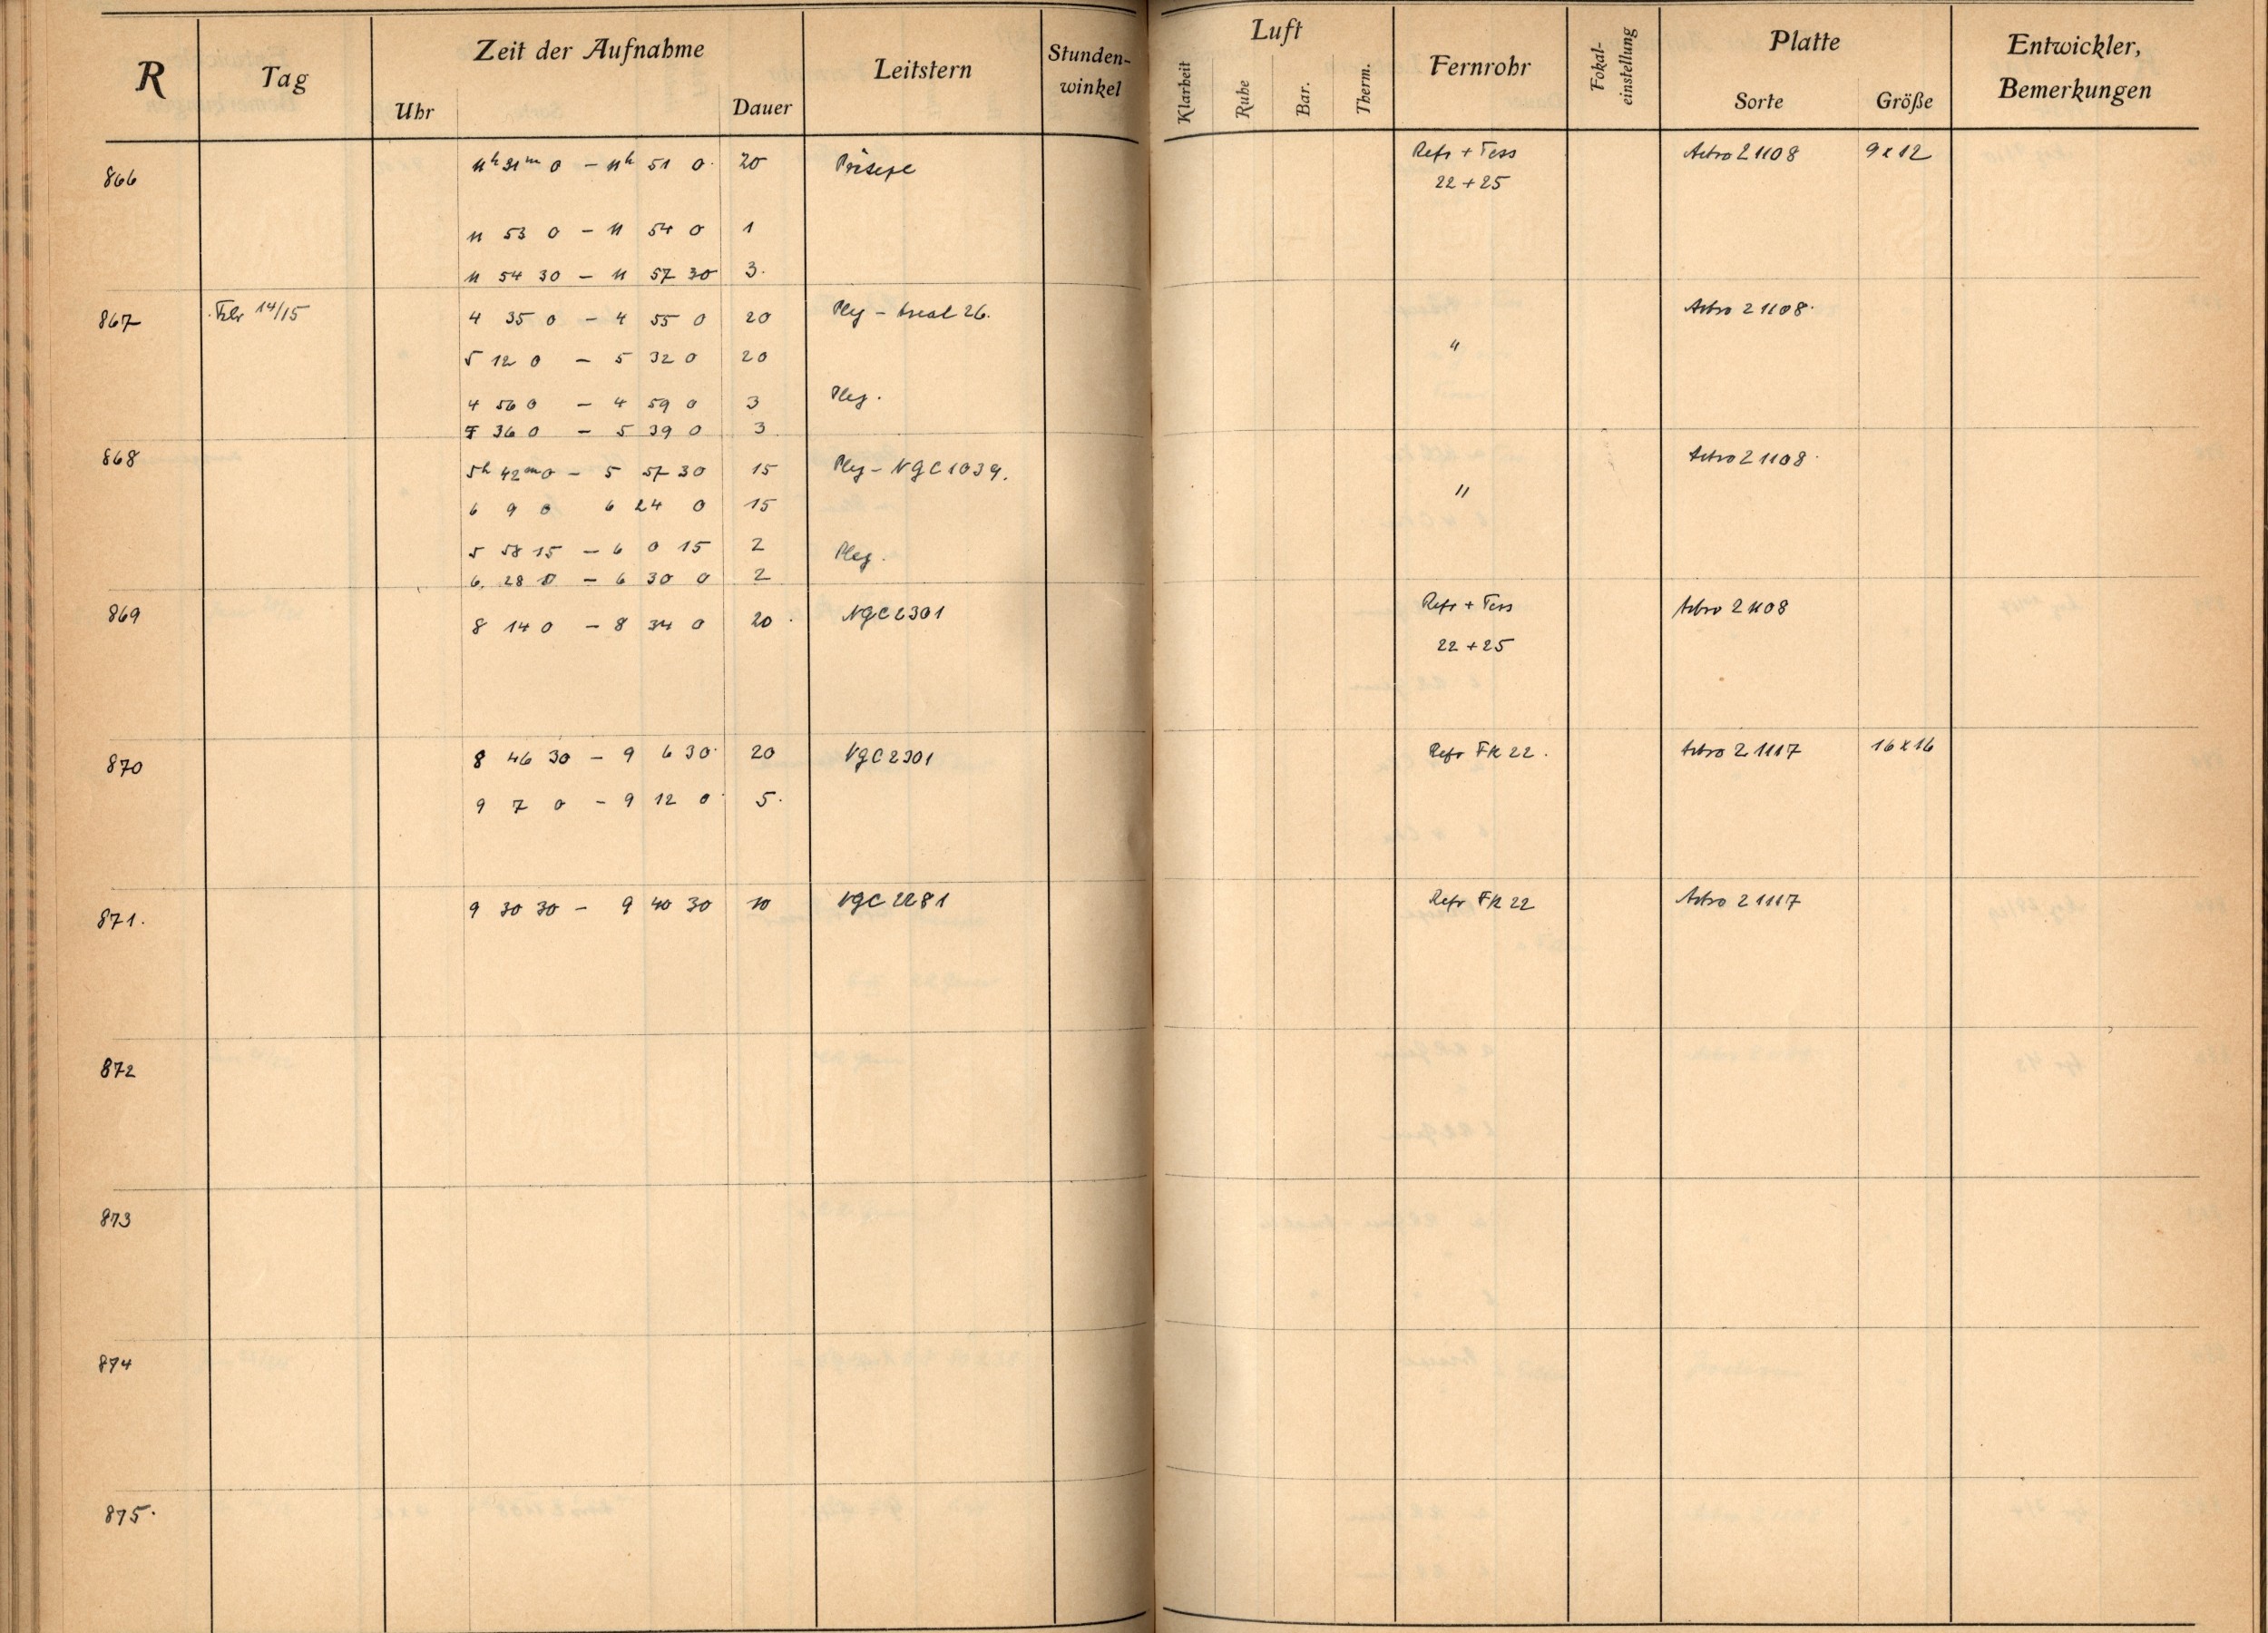 R Tag Zeit der Aufnahme Leitstern Stunden-winkel Luft Fernrohr Fokal-einstellung Platte Entwickler, Bemerkungen
Uhr Dauer Klarheit Ruhe Bar. Therm. Sorte Größe
866 11h 31m 0 – 11h 51 0 20 Präsepe Refr + Tess Astro 21108 9 x 12
22 + 25
11 53 0 – 11 54 0 1
11 54 30 – 11 57 30 3.
867 Febr 14/15 4 35 0 – 4 55 0 20 Plej – Areal 26. Astro 21108.
5 12 0 – 5 32 0 20 "
4 56 0 – 4 59 0 3 Plej.
5 36 0 – 5 39 0 3
868 5h 42m 0 – 5 57 30 15 Plej – NGC 1039. Astro 21108.
6 9 0 6 24 0 15 "
5 58 15 – 6 0 15 2 Plej.
6. 28 0 – 6 30 0 2
869 8 14 0 – 8 34 0 20. NGC 2301 Refr + Tess Astro 21108
22 + 25
870 8 46 30 – 9 6 30 20 NGC 2301 Refr FK 22. Astro 21117 16 x 16
9 7 0 – 9 12 0 5.
871. 9 30 30 – 9 40 30 10 NGC 2281 Refr FK 22 Astro 21117
872
873
874
875.